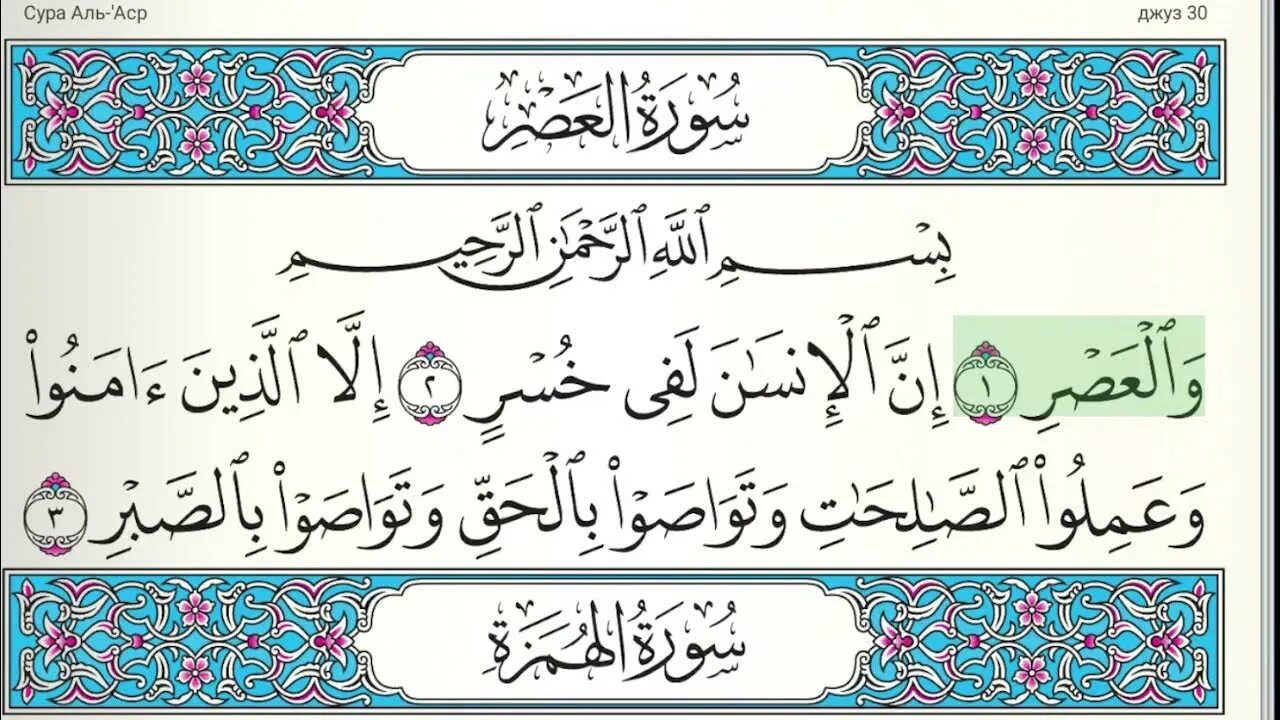 Сура Аль-'Аср
джуз 30
سُورَةُ العَصْرِ
بِسْمِ ٱللَّهِ ٱلرَّحْمَٰنِ ٱلرَّحِيمِ
وَٱلْعَصْرِ ١ إِنَّ ٱلْإِنسَٰنَ لَفِى خُسْرٍ ٢ إِلَّا ٱلَّذِينَ ءَامَنُوا۟
وَعَمِلُوا۟ ٱلصَّٰلِحَٰتِ وَتَوَاصَوْا۟ بِٱلْحَقِّ وَتَوَاصَوْا۟ بِٱلصَّبْرِ ٣
سُورَةُ الهُمَزَةِ